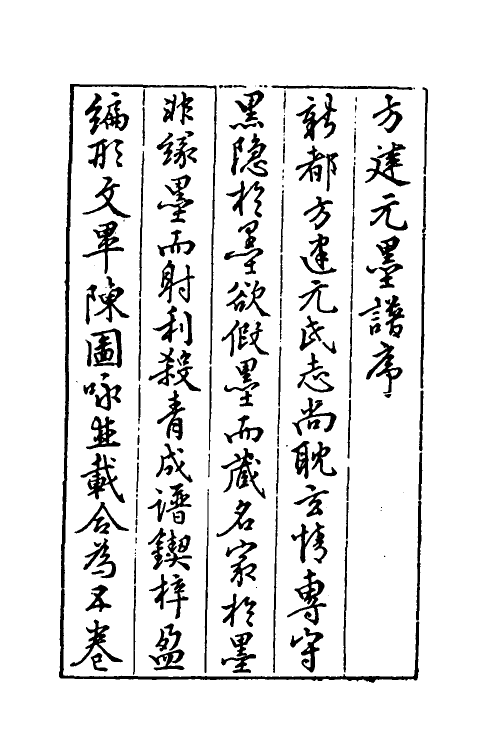 方建元墨譜序
新都方建元氏志尚耽玄情專守
黑隐於墨欲假墨而藏名家於墨
非缘墨而射利殺青成譜鍥梓盈
編形文畢陳圖咏並載合為五卷